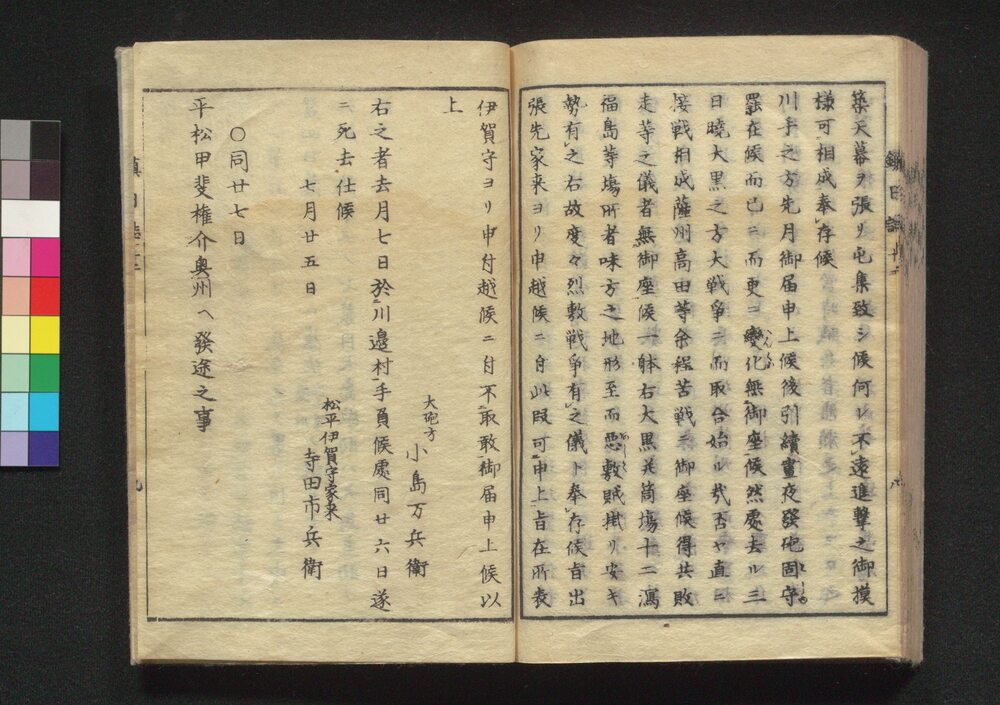 築天幕ヲ張リ屯集致シ候何レ不遠進撃之御摸
様可相成奉存候
川手之方先月御届申上候後引續晝夜發砲固守
罷在候而已ニ而更ニ變化無御座候然處去ル三
日曉大黒之方大戦爭ニ而取合始ル哉否ヤ直ニ
接戦相成薩州高田等余程苦戦ニ御座候得共敗
走等之儀者無御座候一躰右大黒共筒場十二潟
福島等場所者味方之地形至而悪敷賊掛リ安キ
勢有之右故度々烈敷戦爭有之儀ト奉存候旨出
張先家来ヨリ申越候ニ付此段可申上旨在所表
伊賀守ヨリ申付越候ニ付不取敢御届申上候以
上
大砲方
小島万兵衛
右之者去月七日於川邉村手負候處同廿六日遂
ニ死去仕候
松平伊賀守家来
七月廿五日
寺田市兵衛
〇同廿七日
平松甲斐権介奥州へ發途之事